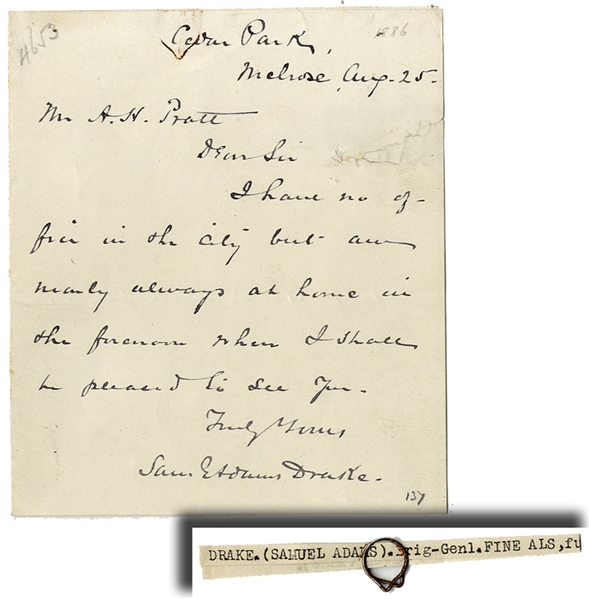 4653
1886
Cedar Park,
Melrose, Aug. 25.
Mr A. H. Pratt
Dear Sir
I have no of-
fice in the city but am
nearly always at home in
the forenoon when I shall
be pleased to see you.
Truly Yours
Saml Adams Drake.
137
DRAKE.(SAMUEL ADAMS). Brig-Genl.FINE ALS,fu